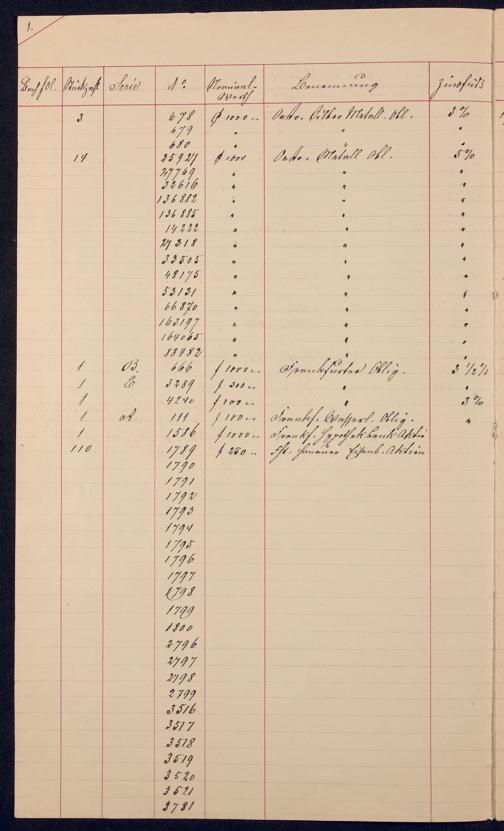 1.
Buchfol. Stückzahl Serie No. Nominal-Werth Benennung Zinsfuß
3 678 f 1000 Oestr. Silber Metall. Obl. 5%
679 " " "
680 " " "
14 25921 f 1000 Oestr. Metall Obl. 5%
27769 " " "
32616 " " "
136882 " " "
136885 " " "
14222 " " "
27318 " " "
33505 " " "
48175 " " "
53131 " " "
66870 " " "
163197 " " "
164065 " " "
88482 " " "
1 B. 666 f 1000 Frankfurter Oblig. 3 1/2%
1 E 3289 f 300 " "
1 4240 f 100 " 3%
1 A. 111 f 100 Frankf. Wasserl. Oblig. "
1 1586 f 1000 Frankf. Hypothekbank Aktie
110 1789 f 250 Fft. Hanauer Eisenb. Aktien
1790
1791
1792
1793
1794
1795
1796
1797
1798
1799
1800
2796
2797
2798
2799
3516
3517
3518
3519
3520
3521
3781